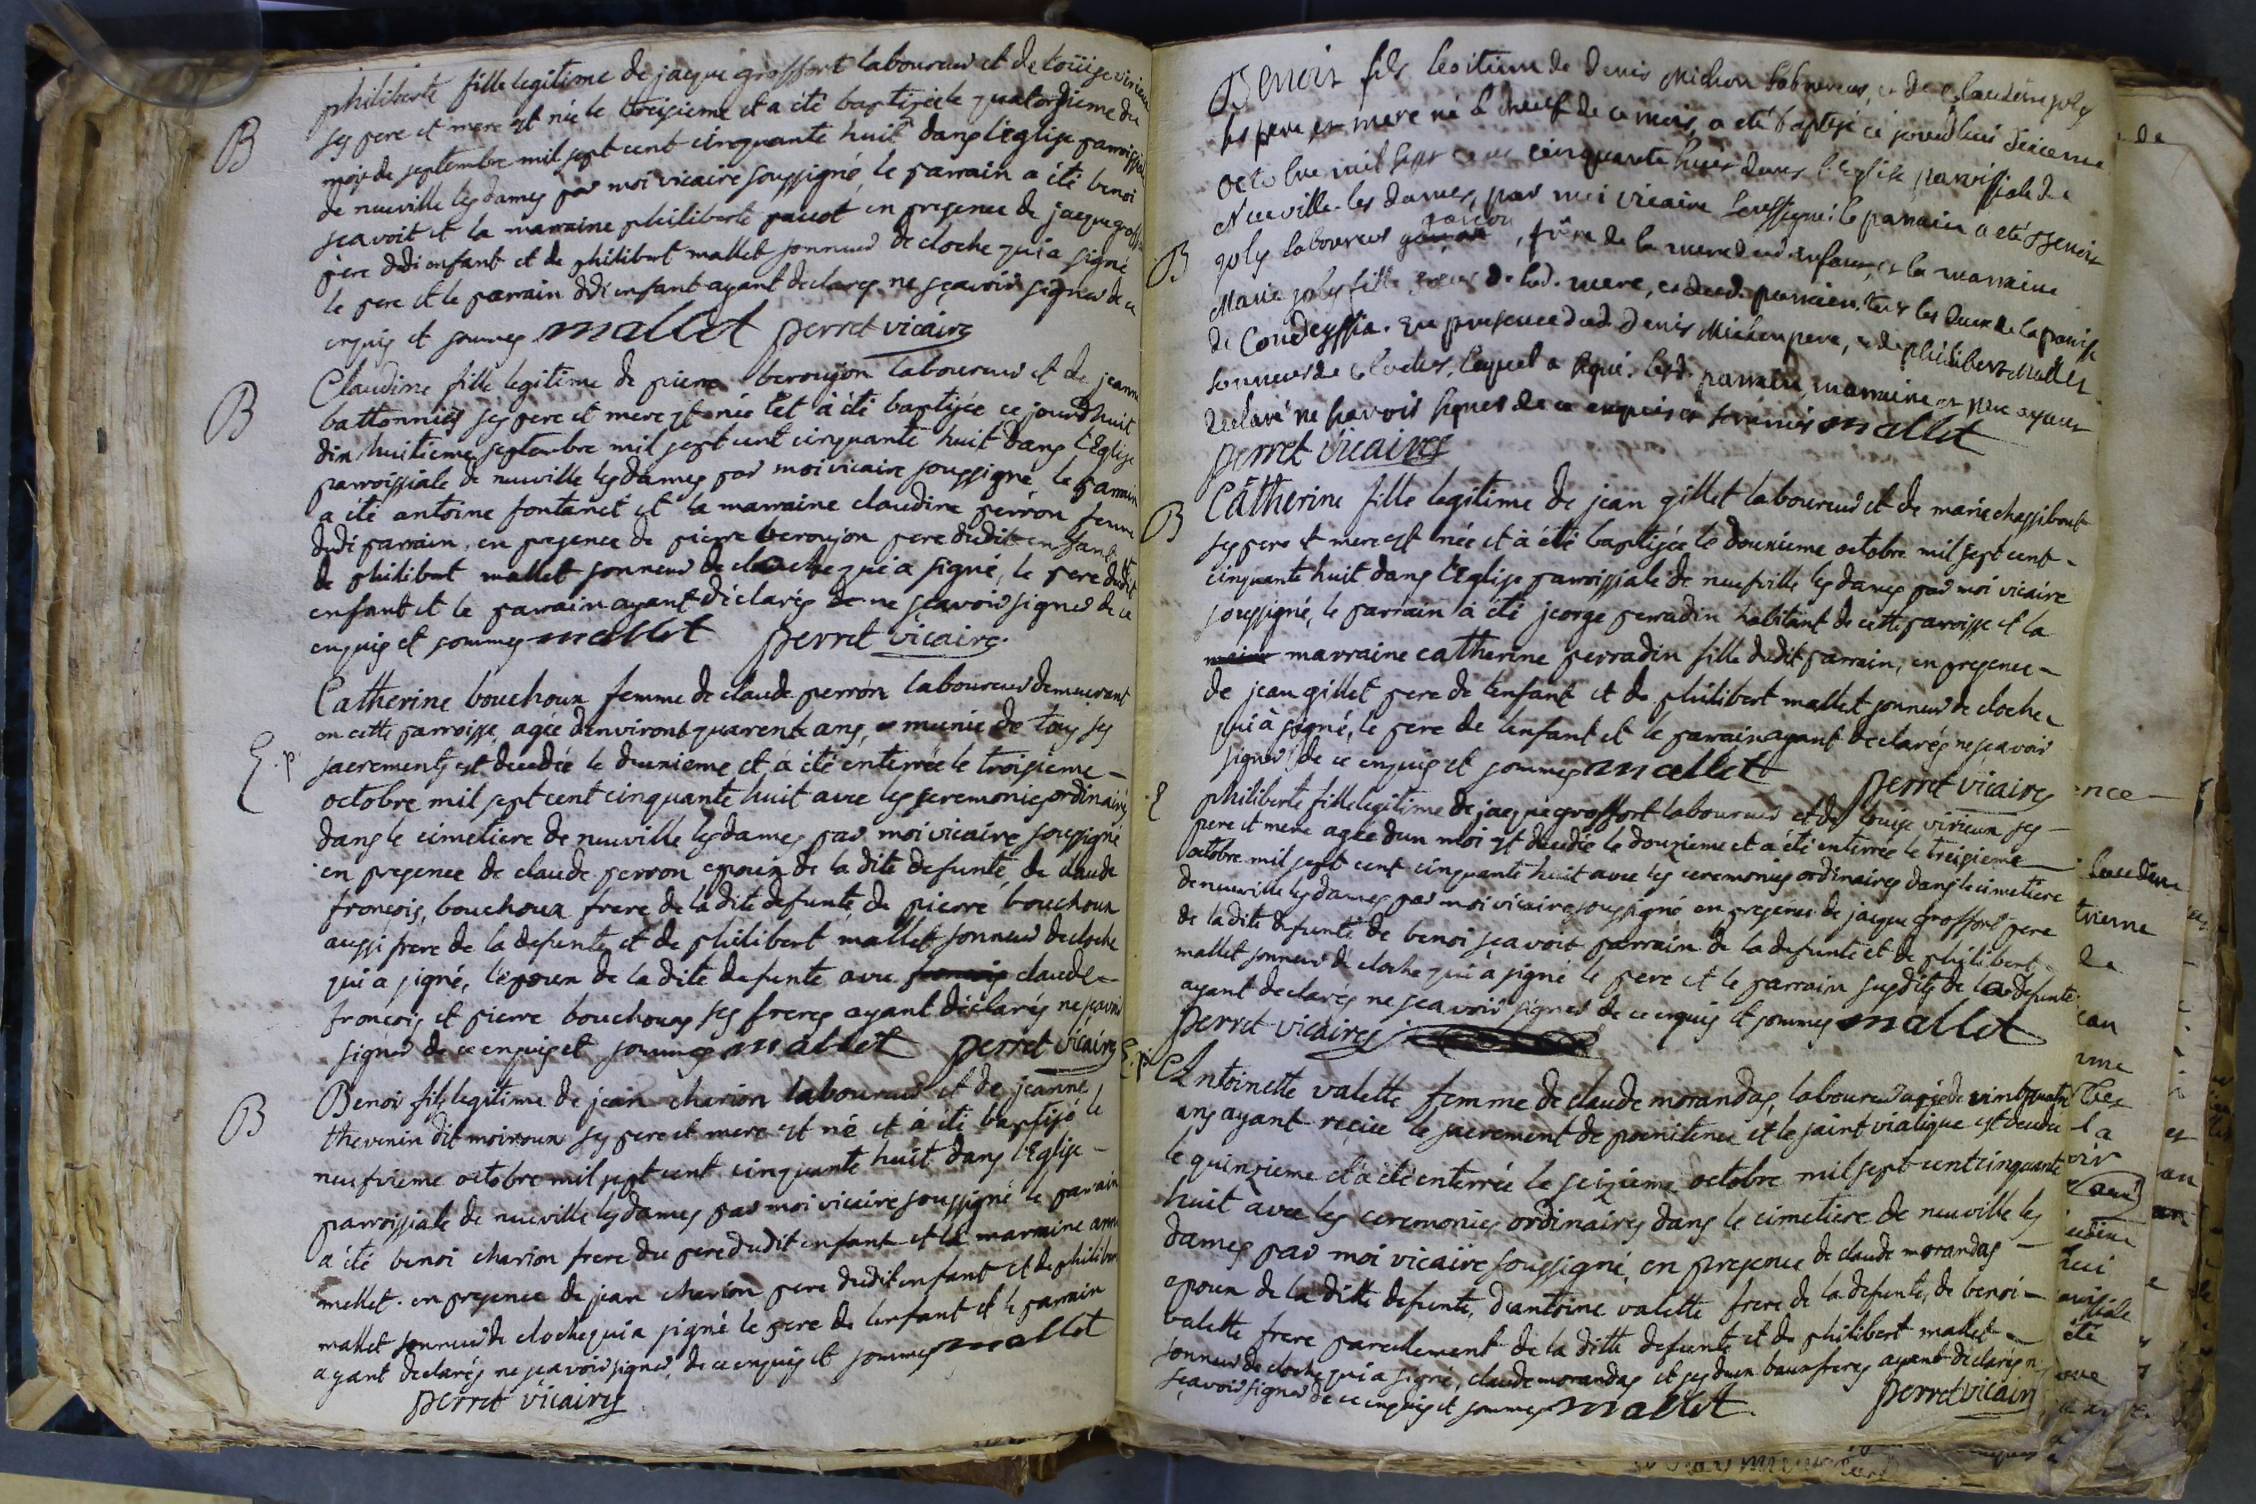 philiberte fille legitime de jaque groffort laboureur et de loüise virieux
ses pere et mere est née le treisieme et a été baptisée le quatordieme du
B
mois de septembre mil sept cent cinquante huit dans l'eglise parroissiale
de neuville les dames par moi vicaire soussigné, le parrain a été benoi
scavoit et la marraine philiberte pacot en presence de jaque groffort
pere dudi enfant et de philibert mallet sonneur de cloche qui a signé
le pere et le parrain dudi enfant ayant declarés ne sçavoir signer de ce
enquis et sommes mallet perret vicaire
Claudine fille legitime de pierre beroujon laboureur et de jeanne
B
battonnier ses pere et mere est née et à été baptisée ce jourdhuit
dix huitieme septembre mil sept cent cinquante huit dans l'Eglise
parroissiale de neuville les dames par moi vicaire soussigné, le parrain
a été antoine fontanet et la marraine claudine perrón femme
dudi parrain, en presence de pierre beroujon pere dudit enfant et
de philibert mallet sonneur de cloche qui a signé, le pere dudit
enfant et le parrain ayant déclarés de ne sçavoir signer de ce
enquis et sommes mallet perret vicaire.
Catherine bouchoux femme de claude perrón laboureur demeurant
en cette parroisse, agée d'environt quarent ans, munie de tous ses
E. p.
sacrements est decedée le deuxieme et á été enterrée le troisieme -
octobre mil sept cent cinquante huit avec les ceremonies ordinaires
dans le cimetiere de neuville les dames par moi vicaire soussigné
en presence de claude perron epoux de la dite defunte, de claude
francois, bouchoux frere de la dite defunte, de pierre bouchoux
aussi frere de la defunte, et de philibert mallet sonneur de cloche
qui a signé, l'epoux de la dite defunte avec claude -
françois et pierre bouchoux ses freres ayant déclarés ne sçavoir
signer de ce enquis et sommes mallet perret vicaire
Benoi fils legitime de jean charion laboureur et de jeanne
B
thevenin dit moiroux ses pere et mere est né et á été baptisé le
neufvieme octobre mil sept cent cinquante huit dans l'Eglise -
parroissiale de neuville les dames par moi vicaire soussigné le parrain
a été benoi charion frere du pere dudit enfant et la marraine anne
mellet. en presence de jean charion pere dudit enfant et de philibert
mallet sonneur de cloche qui a signé le pere de l'enfant et le parrain
ayant declarés ne sçavoir signer, de ce enquis et sommes mallet
perret vicaire
Benoit fils legitime de denis Michon laboureur, et de Claudine joly
ses pere et mere né le neuf de ce mois, a été baptisé ce jourdhui dixieme
octobre mil sept cent cinquante huit dans l'Eglise paroissiale de
Neuville-les dames, par moi vicaire soussigné: le parrain a été Benoit
joly laboureur garcon, frere de la mere dud. enfant, et la marraine
B
Marie joly fille soeur de lad. mere, et dud. parrain, tous les deux de la paroisse
de Condeyssia. en presence dud. denis Michon pere, et de philibert Mallet
sonneur de cloches, lequel a signé. lesd. parrain, marraine et pere ayant
declaré ne sçavoir signer de ce enquis et sommés mallet
perret vicaire
Catherine fille legitime de jean gillet laboureur et de marie chassibout
B
ses pere et mere est née et à été baptisée le douxieme octobre mil sept cent -
cinquante huit dans l'Eglise parroissiale de neufville les dames par moi vicaire
soussigné, le parrain à été jeorge perradin habitant de cette paroisse et la
marraine catherine perradin fille dudit parrain, en presence -
de jean gillet pere de l'enfant et de philibert mallet sonneur de cloche
qui à signé, le pere de l'enfant et le parain ayant declarés ne sçavoir
signer, de ce enquis et sommes mallet
perret vicaire
E
philiberte fille legitime de jacque groffort laboureur et de louise virieux ses -
pere et mere agée d'un moi est decedée le douxieme et a été enterrée le treisieme
octobre mil sept cent cinquante huit avec les ceremonies ordinaires dans le cimetiere
de neuville les dames par moi vicaire soussigné en presence de jacque groffort pere
de la dite defunte de benoi scavoit parrain de la defunte et de philibert
mallet sonneur de cloche qui à signé le pere et le parrain susdits de la defunte
ayant declarés ne sçavoir signer de ce enquis et sommes mallet
perret vicaire
E. p.
Antoinette valette femme de claude morandas, laboureur agée de vint quatre
ans ayant reçue le sacrement de poenitence et le saint viatique est decedée
le quinzieme et à été enterrée le seizieme octobre mil sept cent cinquante
huit avec les ceremonies ordinaires dans le cimetiere de neuville les
dames par moi vicaire soussigné, en presence de claude morandas -
epoux de la ditte defunte, d'antoine valette frere de la defunte, de benoi -
valette frere pareillement de la ditte defunte et de philibert mallet -
sonneur de cloche qui a signé, claude morandas et ses deux beaux freres ayant declarés ne
sçavoir signer de ce enquis et sommes mallet perret vicaire